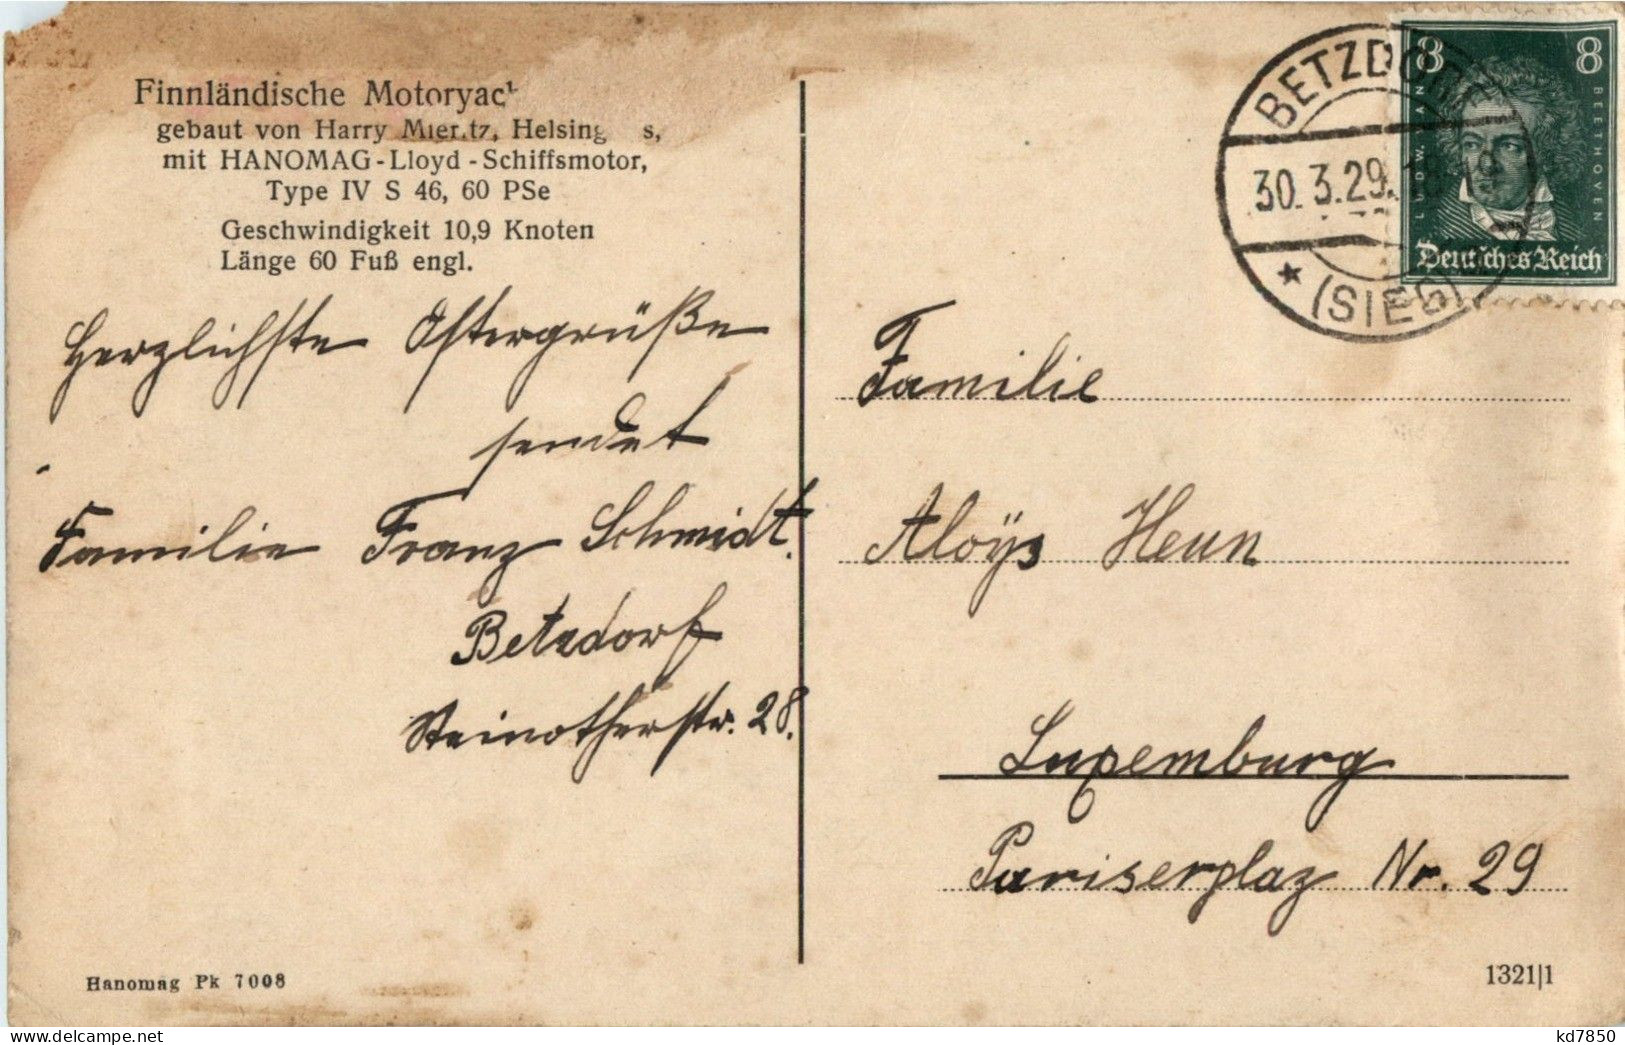 Finnländische Motoryac
gebaut von Harry Helsing s,
mit HANOMAG-Lloyd-Schiffsmotor,
Type IV S 46, 60 PSe
Geschwindigkeit 10,9 Knoten
Länge 60 Fuß engl.
Herzlichste Ostergrüße
sendet
Familie Franz Schmidt.
Betzdorf
Steinotherstr. 28.
Hanomag Pk 7008
BETZDORF
30.3.29.18-19
★ (SIEG)
8 8
LUDW. VAN BEETHOVEN
Deutsches Reich
Familie
Aloÿs Heun
Luxemburg
Pariserplaz Nr. 29
1321|1
kd7850